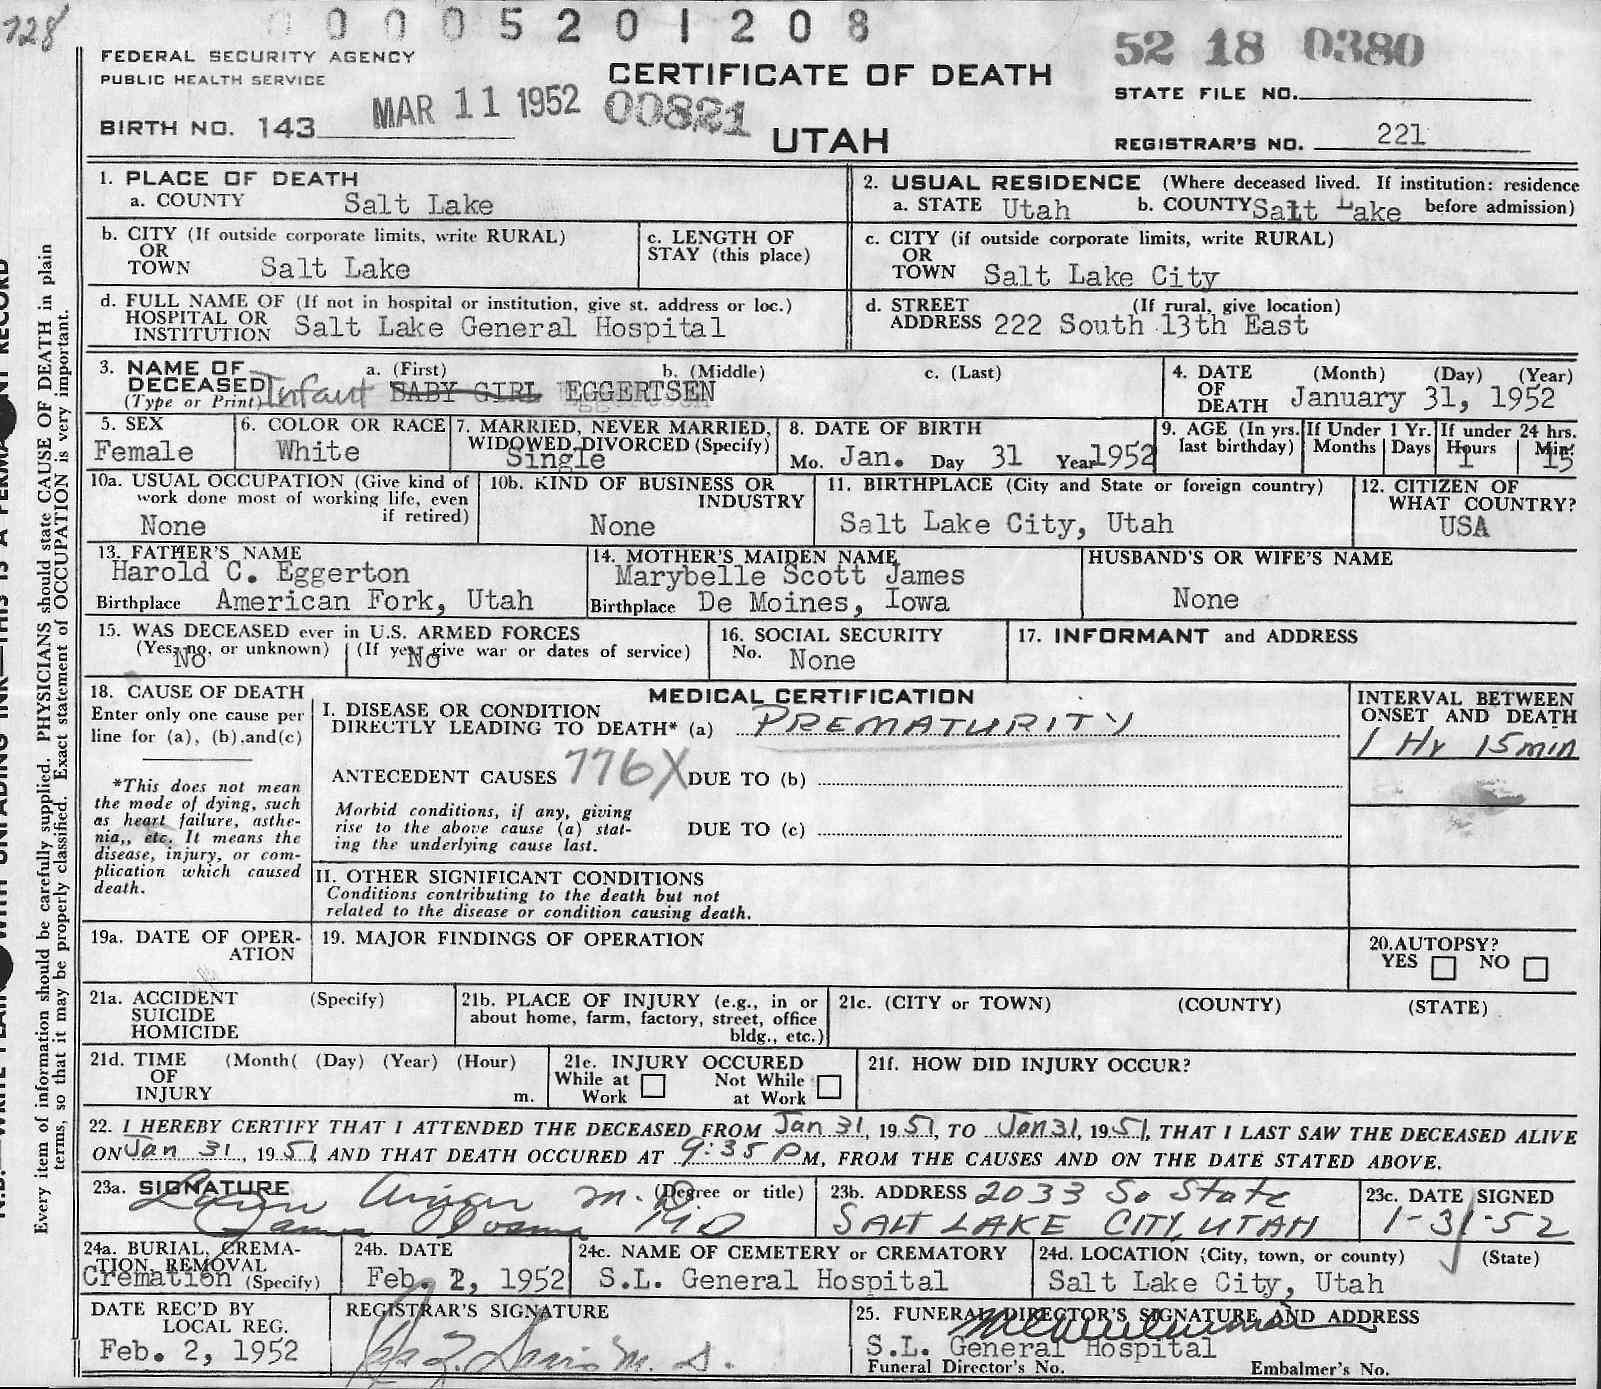 728
0 0 0 0 5 2 0 1 2 0 8
FEDERAL SECURITY AGENCY
PUBLIC HEALTH SERVICE
CERTIFICATE OF DEATH
UTAH
52 18 0380
STATE FILE NO.
MAR 11 1952 00821
BIRTH NO. 143
REGISTRAR'S NO. 221
1. PLACE OF DEATH
a. COUNTY Salt Lake
2. USUAL RESIDENCE (Where deceased lived. If institution: residence
a. STATE Utah b. COUNTY Salt Lake before admission)
b. CITY (If outside corporate limits, write RURAL)
OR
TOWN Salt Lake
c. LENGTH OF
STAY (this place)
c. CITY (if outside corporate limits, write RURAL)
OR
TOWN Salt Lake City
d. FULL NAME OF (If not in hospital or institution, give st. address or loc.)
HOSPITAL OR
INSTITUTION Salt Lake General Hospital
d. STREET (If rural, give location)
ADDRESS 222 South 13th East
3. NAME OF a. (First) b. (Middle) c. (Last)
DECEASED
(Type or Print) Infant BABY GIRL EGGERTSEN
4. DATE (Month) (Day) (Year)
OF
DEATH January 31, 1952
5. SEX
Female
6. COLOR OR RACE
White
7. MARRIED, NEVER MARRIED,
WIDOWED, DIVORCED (Specify)
Single
8. DATE OF BIRTH
Mo. Jan. Day 31 Year 1952
9. AGE (In yrs. last birthday)
If Under 1 Yr.
Months Days
If under 24 hrs.
Hours Min.
1 15
10a. USUAL OCCUPATION (Give kind of
work done most of working life, even
if retired)
None
10b. KIND OF BUSINESS OR
INDUSTRY
None
11. BIRTHPLACE (City and State or foreign country)
Salt Lake City, Utah
12. CITIZEN OF
WHAT COUNTRY?
USA
13. FATHER'S NAME
Harold C. Eggerton
Birthplace American Fork, Utah
14. MOTHER'S MAIDEN NAME
Marybelle Scott James
Birthplace De Moines, Iowa
HUSBAND'S OR WIFE'S NAME
None
15. WAS DECEASED ever in U.S. ARMED FORCES
(Yes, no, or unknown) (If yes, give war or dates of service)
No No
16. SOCIAL SECURITY
No. None
17. INFORMANT and ADDRESS
18. CAUSE OF DEATH
Enter only one cause per
line for (a), (b), and (c)
*This does not mean
the mode of dying, such
as heart failure, asthe-
nia,, etc. It means the
disease, injury, or com-
plication which caused
death.
MEDICAL CERTIFICATION
I. DISEASE OR CONDITION
DIRECTLY LEADING TO DEATH* (a) PREMATURITY
ANTECEDENT CAUSES 776X DUE TO (b)
Morbid conditions, if any, giving
rise to the above cause (a) stat-
ing the underlying cause last.
DUE TO (c)
INTERVAL BETWEEN
ONSET AND DEATH
1 Hr 15 min
II. OTHER SIGNIFICANT CONDITIONS
Conditions contributing to the death but not
related to the disease or condition causing death.
19a. DATE OF OPER-
ATION
19. MAJOR FINDINGS OF OPERATION
20. AUTOPSY?
YES NO
21a. ACCIDENT (Specify)
SUICIDE
HOMICIDE
21b. PLACE OF INJURY (e.g., in or
about home, farm, factory, street, office
bldg., etc.)
21c. (CITY or TOWN) (COUNTY) (STATE)
21d. TIME (Month( (Day) (Year) (Hour)
OF
INJURY m.
21e. INJURY OCCURED
While at Work Not While at Work
21f. HOW DID INJURY OCCUR?
22. I HEREBY CERTIFY THAT I ATTENDED THE DECEASED FROM Jan 31, 1951, TO Jan 31, 1951, THAT I LAST SAW THE DECEASED ALIVE
ON Jan 31, 1951 AND THAT DEATH OCCURED AT 9:35 P M, FROM THE CAUSES AND ON THE DATE STATED ABOVE.
23a. SIGNATURE (Degree or title)
M.D.
James MD
23b. ADDRESS 2033 So State
SALT LAKE CITY, UTAH
23c. DATE SIGNED
1-31-52
24a. BURIAL, CREMA-
TION, REMOVAL
Cremation (Specify)
24b. DATE
Feb. 2, 1952
24c. NAME OF CEMETERY or CREMATORY
S.L. General Hospital
24d. LOCATION (City, town, or county) (State)
Salt Lake City, Utah
DATE REC'D BY
LOCAL REG.
Feb. 2, 1952
REGISTRAR'S SIGNATURE
M. D.
25. FUNERAL DIRECTOR'S SIGNATURE AND ADDRESS
S.L. General Hospital
Funeral Director's No. Embalmer's No.
Every item of information should be carefully supplied. PHYSICIANS should state CAUSE OF DEATH in plain
terms, so that it may be properly classified. Exact statement of OCCUPATION is very important.